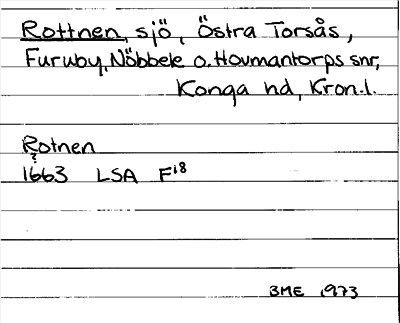 Rottnen, sjö, Östra Torsås,
Furuby, Nöbbele o. Hovmantorps snr,
Konga hd, Kron.l.
Rotnen
?
1663 LSA F18
BME 1973